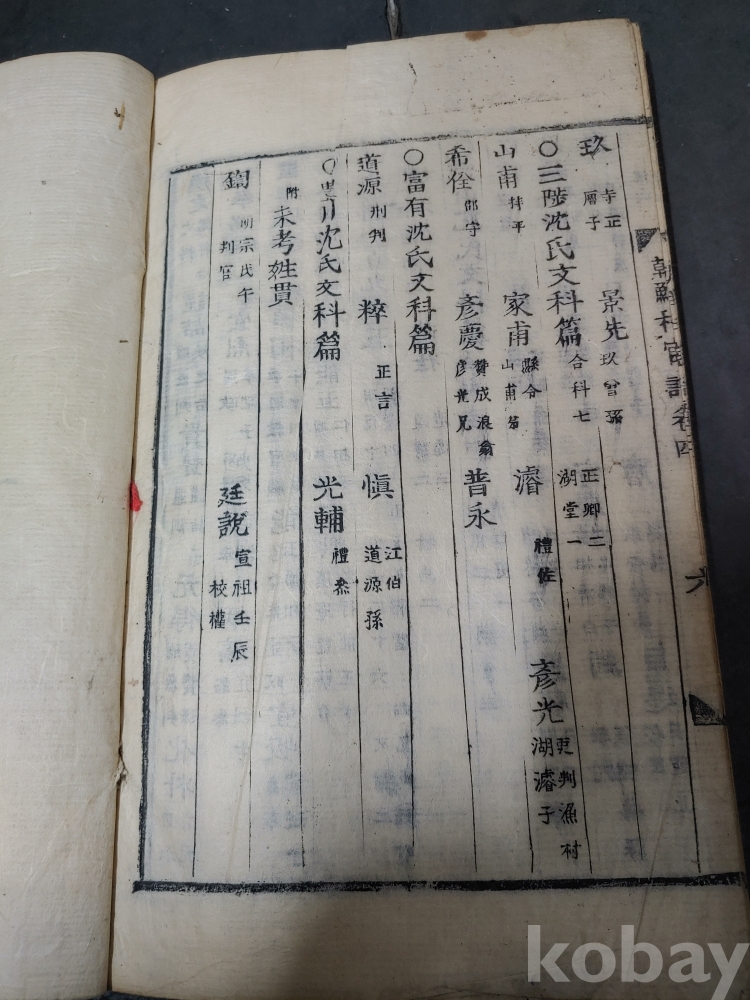 朝鮮科宦譜卷四
六
玖 寺正 層子 景先 玖曾孫
○三陟沈氏文科篇 合科七 正卿二 湖堂一
山甫 持平 家甫 縣令 山甫弟 濬 禮佐 彥光 吏判漁村 湖濬子
希佺 郡守 彥慶 贊成浪翁 彥光兄 普永
○富有沈氏文科篇
道源 刑判 粹 正言 愼 江伯 道源孫
○ 川沈氏文科篇 光輔 禮參
附 未考姓貫
明宗戊午 判官 廷說 宣祖壬辰 校權
kobay